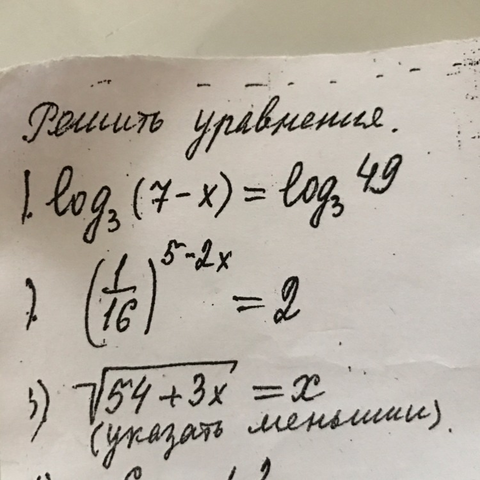 Решить уравнения.
1. log₃(7-x) = log₃49
2. (1/16)^(5-2x) = 2
3) √(54+3x) = x
(указать меньший).